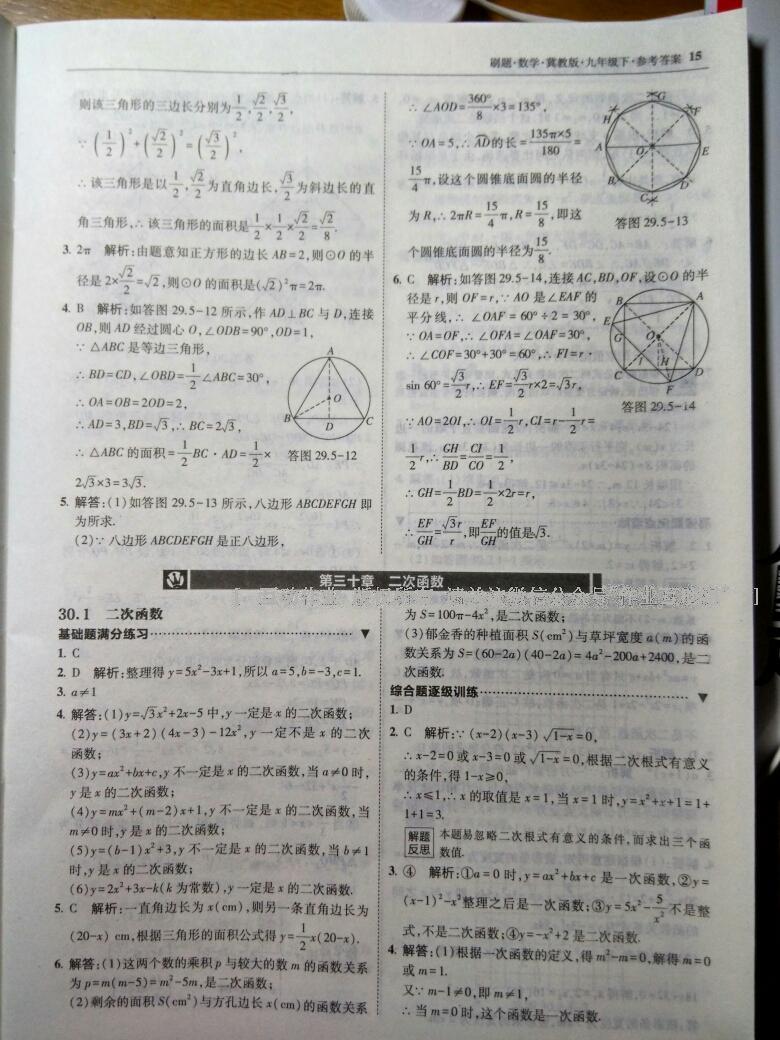 刷题·数学·冀教版·九年级下·参考答案 15
则该三角形的三边长分别为1/2,√2/2,√3/2,
∵(1/2)²+(√2/2)²=(√3/2)²,
∴该三角形是以1/2,√2/2为直角边长,√3/2为斜边长的直
角三角形,∴该三角形的面积是1/2×1/2×√2/2=√2/8.
3. 2π 解析:由题意知正方形的边长AB=2,则⊙O的半
径是2×√2/2=√2,则⊙O的面积是(√2)²π=2π.
4. B 解析:如答图29.5-12所示,作AD⊥BC与D,连接
OB,则AD经过圆心O,∠ODB=90°,OD=1,
∵△ABC是等边三角形,
∴BD=CD,∠OBD=1/2∠ABC=30°,
∴OA=OB=2OD=2,
∴AD=3,BD=√3,∴BC=2√3,
∴△ABC的面积=1/2BC·AD=1/2×
2√3×3=3√3.
A
O
B
D
C
答图29.5-12
5. 解答:(1)如答图29.5-13所示,八边形ABCDEFGH即
为所求.
(2)∵八边形ABCDEFGH是正八边形,
∴∠AOD=360°/8×3=135°,
∵OA=5,∴AD的长=135π×5/180=
15/4π,设这个圆锥底面圆的半径
为R,∴2πR=15/4π,R=15/8,即这
个圆锥底面圆的半径为15/8.
G
H
F
A
O
E
B
D
C
答图29.5-13
6. C 解析:如答图29.5-14,连接AC,BD,OF,设⊙O的半
径是r,则OF=r,∵AO是∠EAF的
平分线,∴∠OAF=60°÷2=30°,
∵OA=OF,∴∠OFA=∠OAF=30°,
∴∠COF=30°+30°=60°,∴FI=r·
sin 60°=√3/2r,∴EF=√3/2r×2=√3r,
∵AO=2OI,∴OI=1/2r,CI=r-1/2r=
1/2r,∴GH/BD=CI/CO=1/2,
∴GH=1/2BD=1/2×2r=r,
∴EF/GH=√3r/r,即EF/GH的值是√3.
B
A
E
G
O
I
H
C
D
F
答图29.5-14
第三十章 二次函数
30.1 二次函数
基础题满分练习
1. C
2. D 解析:整理得y=5x²-3x+1,所以a=5,b=-3,c=1.
3. a≠1
4. 解答:(1)y=√3x²+2x-5中,y一定是x的二次函数;
(2)y=(3x+2)(4x-3)-12x²,y一定不是x的二次
函数;
(3)y=ax²+bx+c,y不一定是x的二次函数,当a≠0时,
y是x的二次函数;
(4)y=mx²+(m-2)x+1,y不一定是x的二次函数,当
m≠0时,y是x的二次函数;
(5)y=(b-1)x²+3,y不一定是x的二次函数,当b≠1
时,y是x的二次函数;
(6)y=2x²+3x-k(k为常数),y一定是x的二次函数.
5. C 解析:一直角边长为x(cm),则另一条直角边长为
(20-x) cm,根据三角形的面积公式得y=1/2x(20-x).
6. 解答:(1)这两个数的乘积p与较大的数m的函数关系
为p=m(m-5)=m²-5m,是二次函数;
(2)剩余的面积S(cm²)与方孔边长x(cm)的函数关系
为S=100π-4x²,是二次函数;
(3)郁金香的种植面积S(cm²)与草坪宽度a(m)的函
数关系为S=(60-2a)(40-2a)=4a²-200a+2400,是二
次函数.
综合题逐级训练
1. D
2. C 解析:∵(x-2)(x-3)√1-x=0,
∴x-2=0或x-3=0或√1-x=0,根据二次根式有意义
的条件,得1-x≥0,
∴x≤1,∴x的取值是x=1,当x=1时,y=x²+x+1=1+
1+1=3.
解题反思 本题易忽略二次根式有意义的条件,而求出三个函
数值.
3. ④ 解析:①a=0时,y=ax²+bx+c是一次函数,②y=
(x-1)²-x²整理之后是一次函数;③y=5x²-5/x²不是整
式,不是二次函数;④y=-x²+2是二次函数.
4. 解答:(1)根据一次函数的定义,得m²-m=0,解得m=0
或m=1.
又∵m-1≠0,即m≠1,
∴当m=0时,这个函数是一次函数.